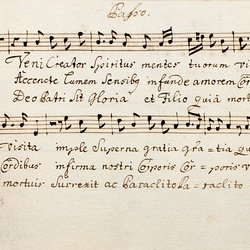 Basso.
Veni Creator Spiritus mentes tuorum vi
Accende lumen Sensibg infunde amorem Cor
Deo Patri Sit Gloria et Filio Qui à mor
visita imple Superna gratia gra=tia Qu
Cordibus infirma nostri Corporis Cor=poris v
mortuis Surrexit ac Paraclito Pa=raclito